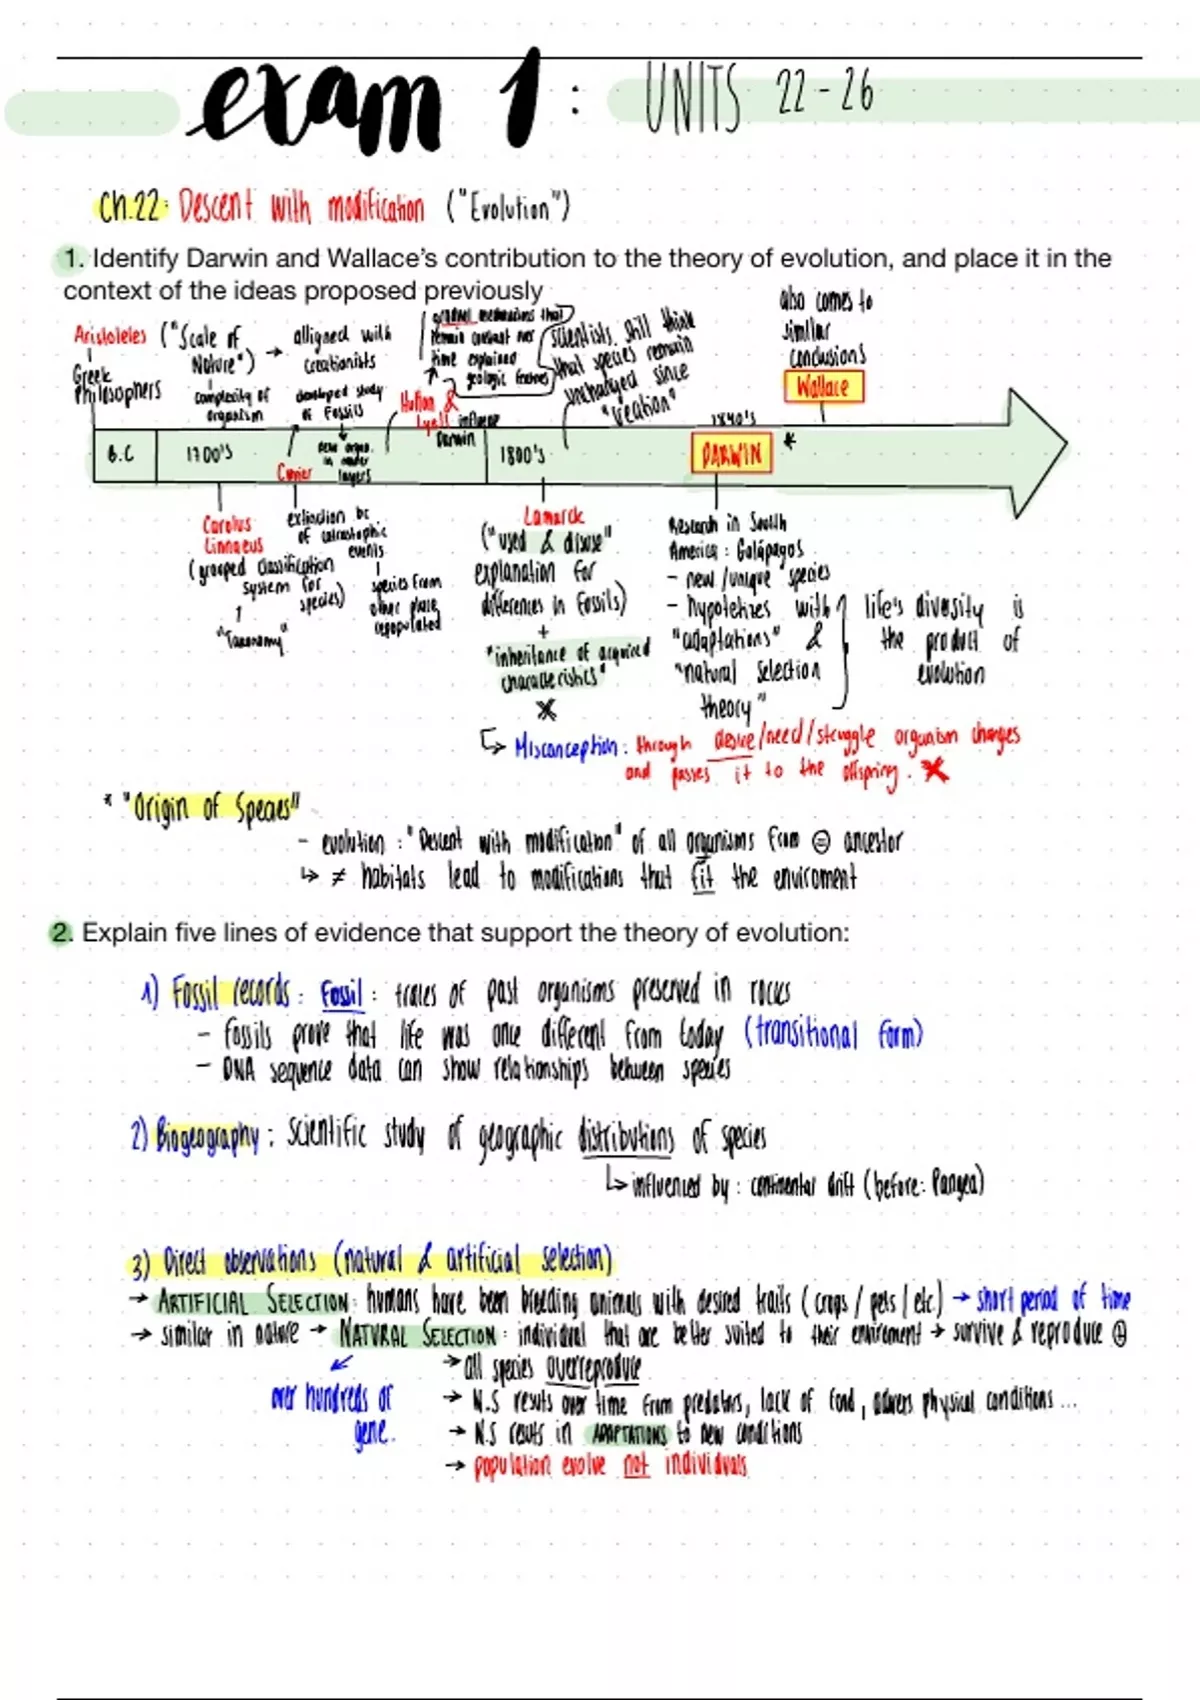 exam 1: UNITS 22-26
Ch.22: Descent with modification ("Evolution")
1. Identify Darwin and Wallace's contribution to the theory of evolution, and place it in the
context of the ideas proposed previously
Aristoteles
Greek
Philosophers
("Scale of
Nature")
complexity of
organism
→ alligned with
creationists
developed study
of Fossils
new orgas.
in newer
layers
gradual mechanisms that
remain constant over
time explained
geologic features
Hutton &
Lyell influence
Darwin
scientists still think
that species remain
unchanged since
"creation"
also comes to
similar
conclusions
Wallace
B.C
1700's
Cuvier
1800's
1840's
DARWIN *
Carolus
Linnaeus
(grouped classification
system for
species)
"Taxonomy"
extinction bc
of catastrophic
events
species from
other place
repopulated
Lamarck
("used & disuse"
explanation for
differences in fossils)
+
"inheritance of acquired
characteristics"
Research in South
America: Galápagos
- new/unique species
- hypotehizes with
"adaptations" &
"natural selection
theory"
life's diversity is
the product of
evolution
↳ Misconception: through desire/need/struggle organism changes
and passes it to the offspring. X
* "Origin of Species"
- evolution: "Descent with modification" of all organisms from = ancestor
↳ ≠ habitats lead to modifications that fit the enviroment
2. Explain five lines of evidence that support the theory of evolution:
1) Fossil records: Fossil: traces of past organisms preserved in rocks
- fossils prove that life was once different from today (transitional form)
- DNA sequence data can show relationships between species
2) Biogeography: Scientific study of geographic distributions of species
↳ influenced by: continental drift (before: Pangea)
3) Direct observations (natural & artificial selection)
→ ARTIFICIAL SELECTION: humans have been breeding animals with desired traits (crops/pets/etc.) → short period of time
→ similar in nature → NATURAL SELECTION: individual that are better suited to their enviroment → survive & reproduce
over hundreds of
gene.
→ all species overreproduce
→ N.S results over time from predators, lack of food, advers physical conditions ...
→ N.S results in ADAPTATIONS to new conditions
→ population evolve not individuals